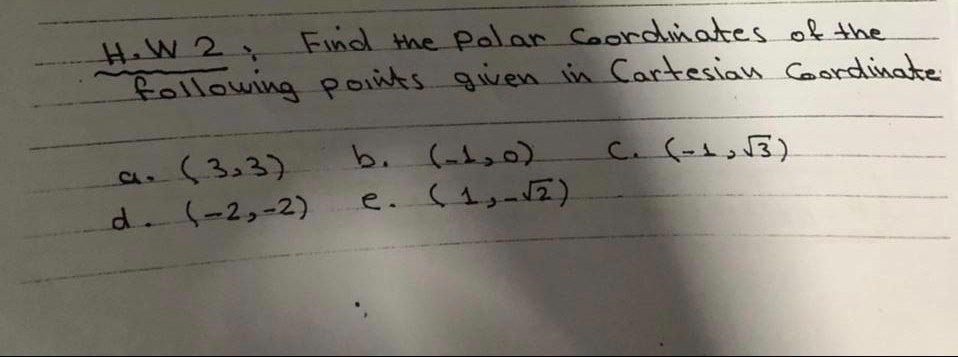 H.W 2: Find the Polar Coordinates of the
following points given in Cartesian Coordinate
a. (3,3) b. (-1,0) c. (-1,√3)
d. (-2,-2) e. (1,-√2)